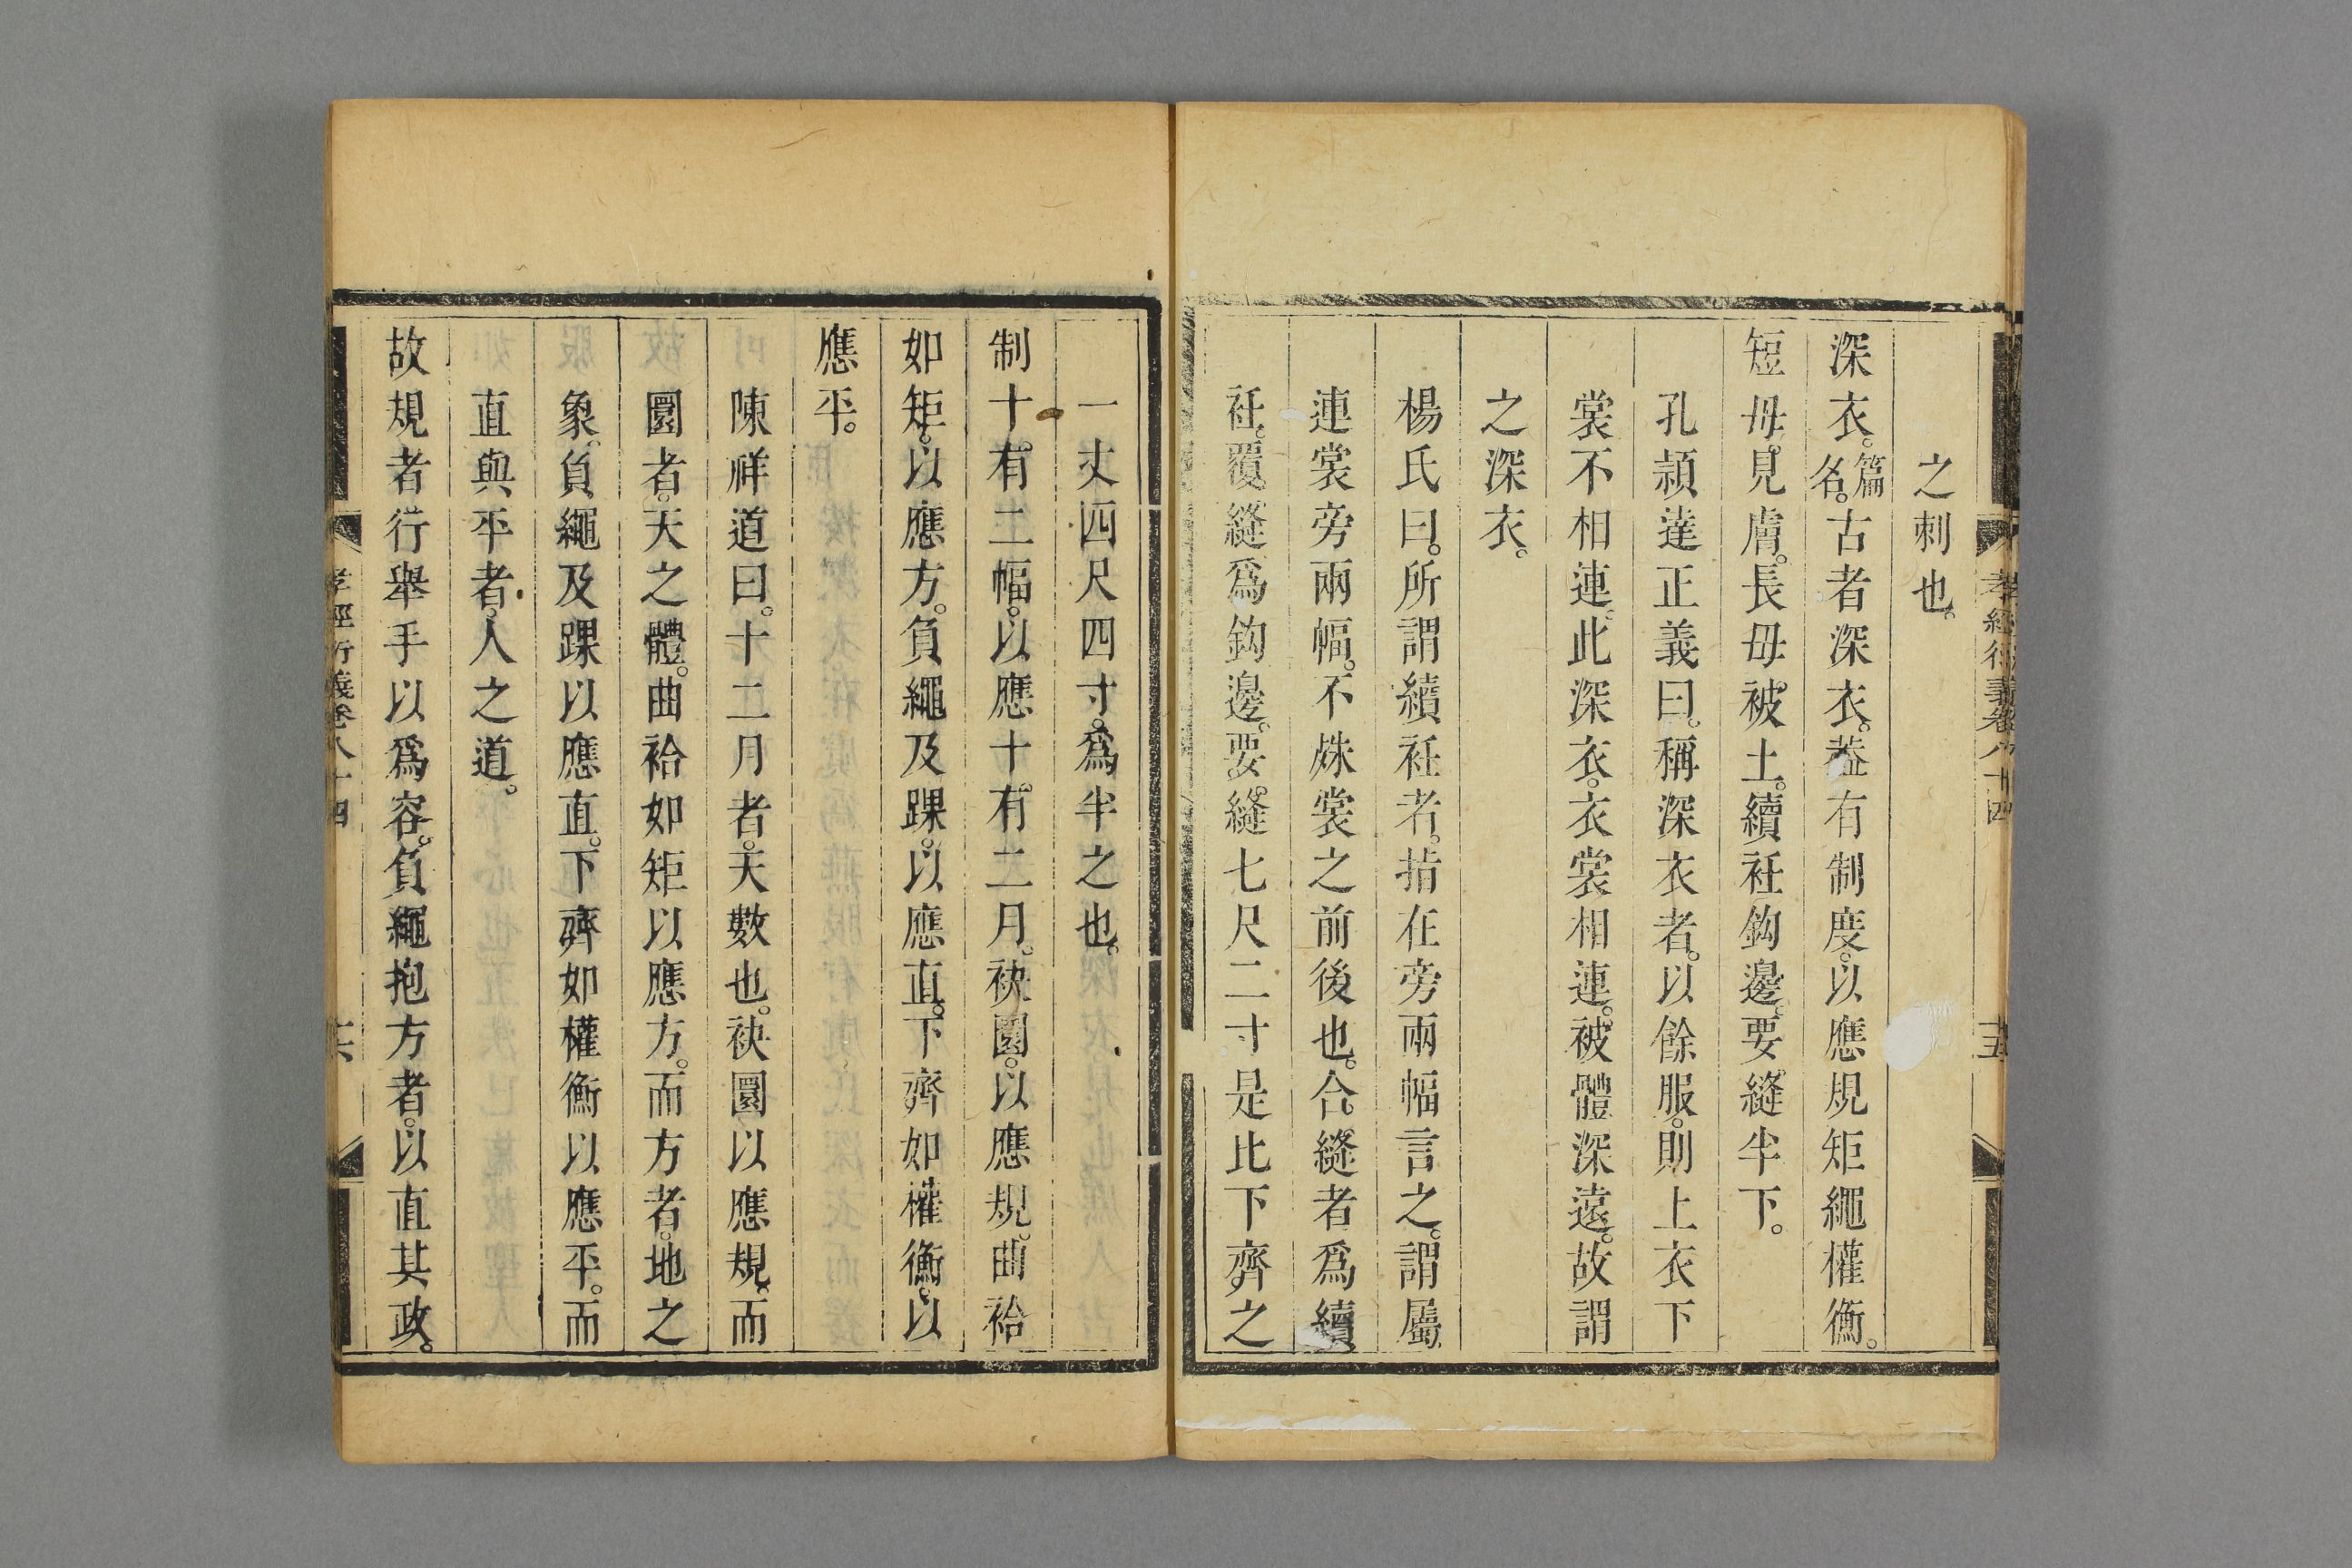 孝經衍義卷八十四
十五
之刺也。
深衣。篇名。古者深衣。葢有制度。以應規矩繩權衡。
短毋見膚。長毋被土。續衽鈎邊。要縫半下。
孔頴達正義曰。稱深衣者。以餘服。則上衣下
裳不相連。此深衣。衣裳相連。被體深邃。故謂
之深衣。
楊氏曰。所謂續衽者。指在旁兩幅言之。謂屬
連裳旁兩幅。不殊裳之前後也。合縫者爲續
衽。覆縫爲鈎邊。要縫七尺二寸是比下齊之
一丈四尺四寸。爲半之也。
制十有二幅。以應十有二月。袂圜。以應規。曲袷
如矩。以應方。負繩及踝。以應直。下齊如權衡。以
應平。
陳祥道曰。十二月者。天數也。袂圜以應規。而
圜者。天之體。曲袷如矩以應方。而方者。地之
象。負繩及踝以應直。下齊如權衡以應平。而
直與平者。人之道。
故規者行舉手以爲容。負繩抱方者。以直其政。
孝經衍義卷八十四
十六